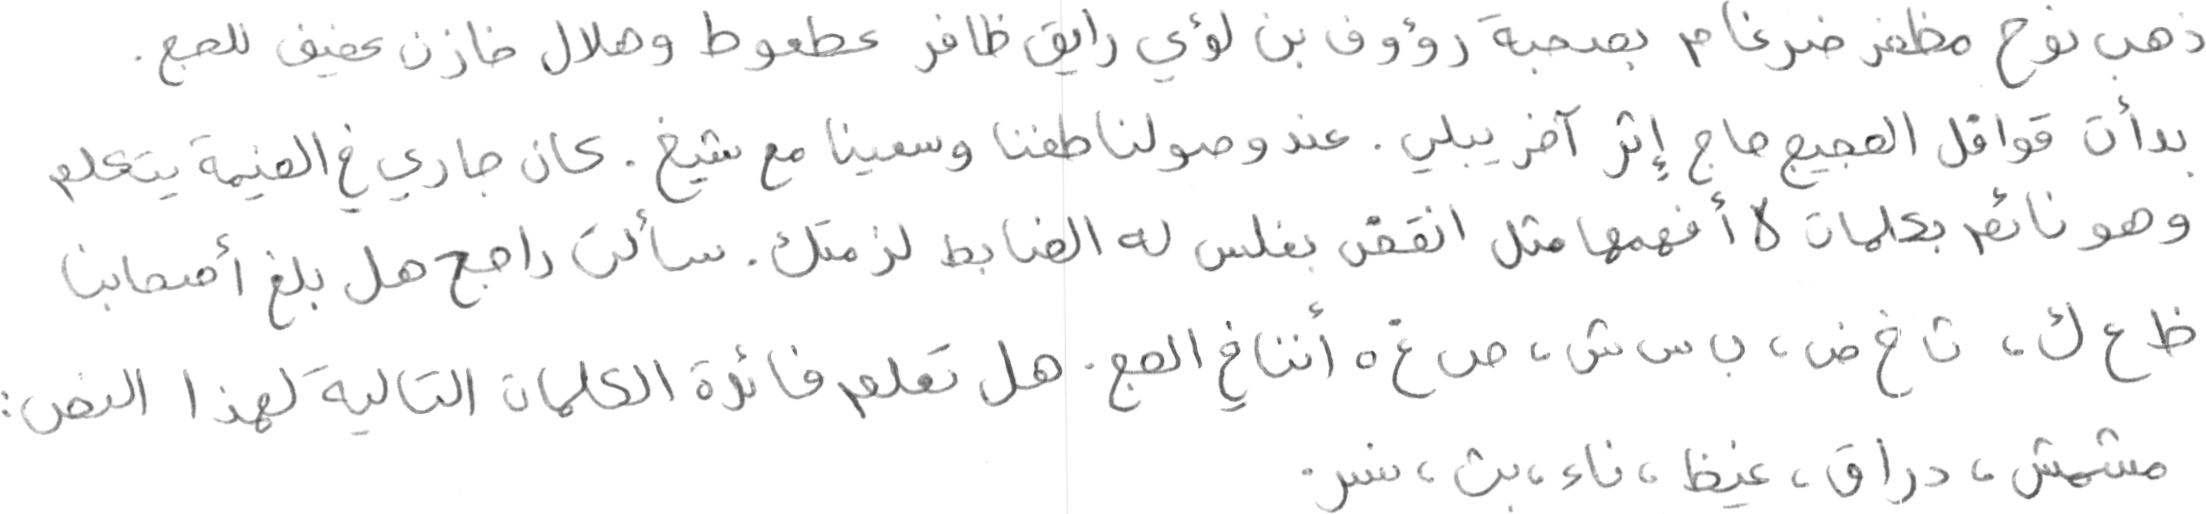 ذهب نوح مظفر ضرغام بصحبة رؤوف بن لؤي رايق ظافر عطعوط وهلال خازن عفيف للحج.
بدأت قوافل الحجيج حاج إثر آخر يبلي. عند وصولنا طفنا وسعينا مع شيخ. كان جاري في الخيمة يتكلم
وهو نائم بكلمات لا أفهمها مثل انقض بغلس له الضابط لزمتك. سألت راجح هل بلغ أصحابنا
ظ ع ك، ث خ ض، ب س ش، ص غ ه أننا في الحج. هل تعلم فائدة الكلمات التالية لهذا النص:
مشمش، دراق، غيظ، ناء، بث، نسر.